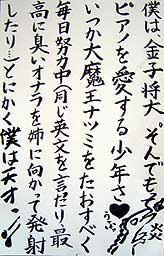 僕は、金子将大。そんでもって
ピアノを愛する少年さ♥
いつか大魔王ナツミをたおすべく うふ
毎日努力中(同じ英文を言だり、最
高に臭いオナラを姉に向かって発射
したり…)とにかく僕は天才